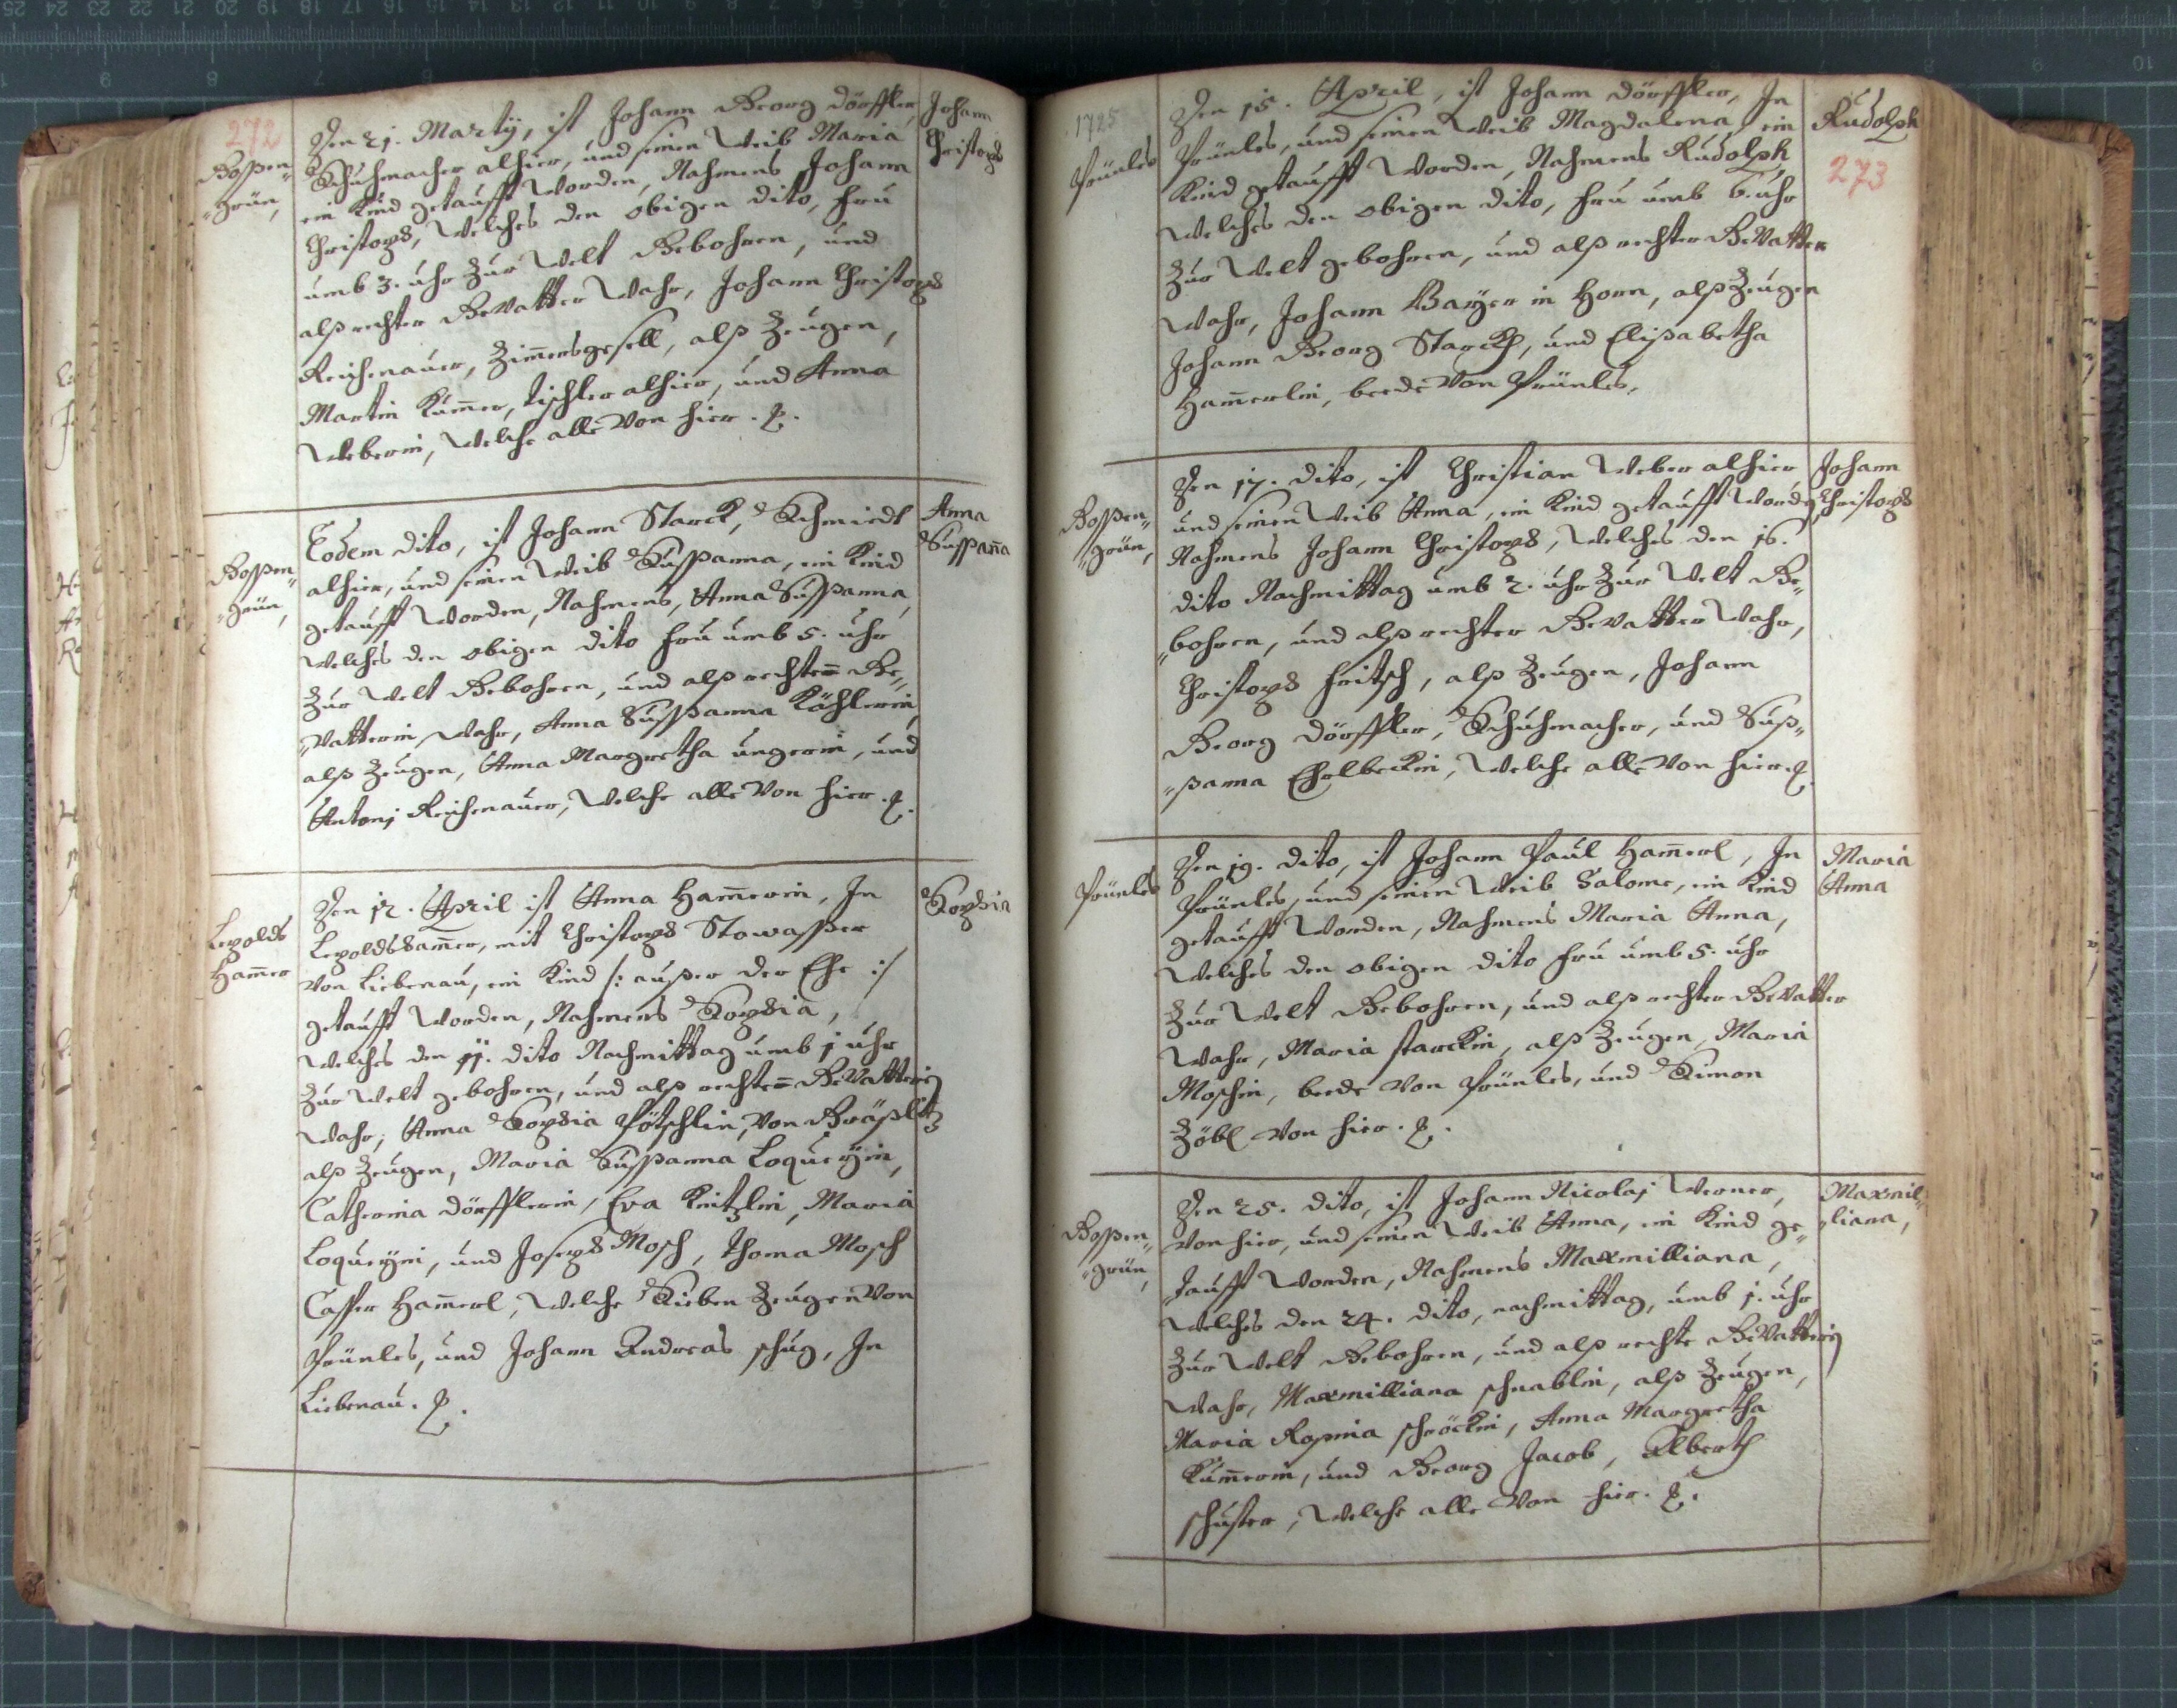 272
Boßen„
„grün,
Den 21. Marty, ist Johann Georg Dörffler,
Schuhmacher alhier, und seinen Weib Maria
ein Kind getaufft worden, Nahmens Johann
Christoph, welches den obigen dito, fru
umb 3. uhr zur Welt Gebohren, und
alß rechter Gevatter wahr, Johann Christoph
Reichenauer, Zim̄ersgesell, alß Zeugen,
Martin Kum̄er, tischler alhier, und Anna
Weberin, welche alle von hier. p.
Johann
Christoph
Boßen„
„grün,
Eodem dito, ist Johann Starck, Schmiedt
alhier, und seinen Weib Sußanna, ein Kind
getaufft worden, Nahmens, Anna Sußanna,
welches den obigen dito fru umb 5. uhr
zur Welt Gebohren, und alß rechten Ge„
„vatterin wahr, Anna Sußanna Köhlerin,
alß Zeugen, Anna Margretha ungerin, und
Antonj Reichenauer, welche alle von hier. p.
Anna
Sußan̄a
Lepolds
Ham̄er
Den 12. April ist Anna Ham̄erin, In
Lepoldsham̄er, mit Christoph Stowaßer
von Liebenau, ein Kind /: außer der Ehe :/
getaufft worden, Nahmens Sophia,
welches den 11. dito Nachmittag umb 1 uhr
zur Welt gebohren, und alß rechten Gevatterin
wahr, Anna Sophia Pötschlin, von Graßlitz
alß Zeugen, Maria Sußanna Loqueÿin,
Catherina Dörfflerin, Eva Knitzlin, Maria
Loqueÿin, und Joseph Mosch, Thoma Mosch
Casper Ham̄erl, welche Sieben Zeugen von
Prünles, und Johann Andreas schug, In
Liebenau. p.
Sophia
1725
Prünles
Den 15. April, ist Johann Dörffler, In
Prünles, und seinen Weib Magdalena, ein
Kind getaufft worden, Nahmens Rudolph,
welches den obigen dito, fru umb 6. uhr
zur Welt gebohren, und alß rechter Gevatter
wahr, Johann Baÿer in Horn, alß Zeugen
Johann Georg Starckh, und Elisabetha
Ham̄erlin, beede von Prünles,
Rudolph
273
Boßen„
„grün,
Den 17. dito, ist Christian Weber alhier
und seinen Weib Anna, ein Kind getaufft worden,
Nahmens Johann Christoph, welches den 16.
dito Nachmittag umb 2. uhr zur Welt Ge„
„bohren, und alß rechter Gevatter wahr,
Christoph Fritsch, alß Zeugen, Johann
Georg Dörffler, Schuhmacher, und Suß„
„ßanna Ehelbeckin, welche alle von hier. p.
Johann
Christoph
Prünles
Den 19. dito, ist Johann Paul Ham̄erl, In
Prünles, und seinen Weib Salome, ein Kind
getaufft worden, Nahmens Maria Anna,
welches den obigen dito fru umb 5. uhr
zur Welt Gebohren, und alß rechter Gevatter
wahr, Maria starckin, alß Zeugen, Maria
Moschin, beede von Prünles, und Simon
Zöbl von hier. p.
Maria
Anna
Boßen„
„grün,
Den 25. dito, ist Johann Nicolaj Werner,
von hier, und seinen Weib Anna, ein Kind ge„
taufft worden, Nahmens Maxmilliana,
welches den 24. dito, nachmittag, umb 1. uhr
zur Welt Gebohren, und alß rechte Gevatterin
wahr, Maxmilliana schnablin, alß Zeugen,
Maria Rosina schröckin, Anna Margretha
Kum̄erin, und Georg Jacob, Alberth
schuster, welche alle von hier. p.
Maxmil„
„liana,